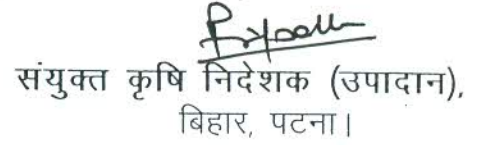 संयुक्त कृषि निदेशक (उपादान),
बिहार, पटना।